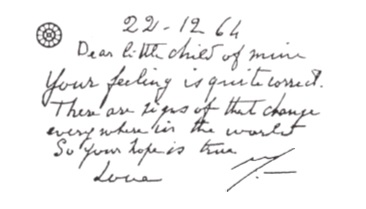 22-12 64
Dear little child of mine
Your feeling is quite correct.
There are signs of that change
everywhere in the world
So your hope is true
Love